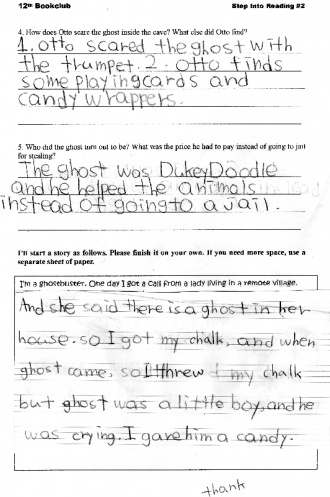 12th Bookclub Step Into Reading #2
4. How does Otto scare the ghost inside the cave? What else did Otto find?
1. Otto scared the ghost with
the trumpet. 2. Otto finds
some playing cards and
candy wrappers.
5. Who did the ghost turn out to be? What was the price he had to pay instead of going to jail
for stealing?
The ghost was DukeyDoodle
and he helped the animals
instead of going to a jail.
I'll start a story as follows. Please finish it on your own. If you need more space, use a
separate sheet of paper.
I'm a ghostbuster. One day I got a call from a lady living in a remote village.
And she said there is a ghost in her
house. so I got my chalk, and when
ghost came, so I threw my chalk
but ghost was a little boy, and he
was crying. I gave him a candy.
thank